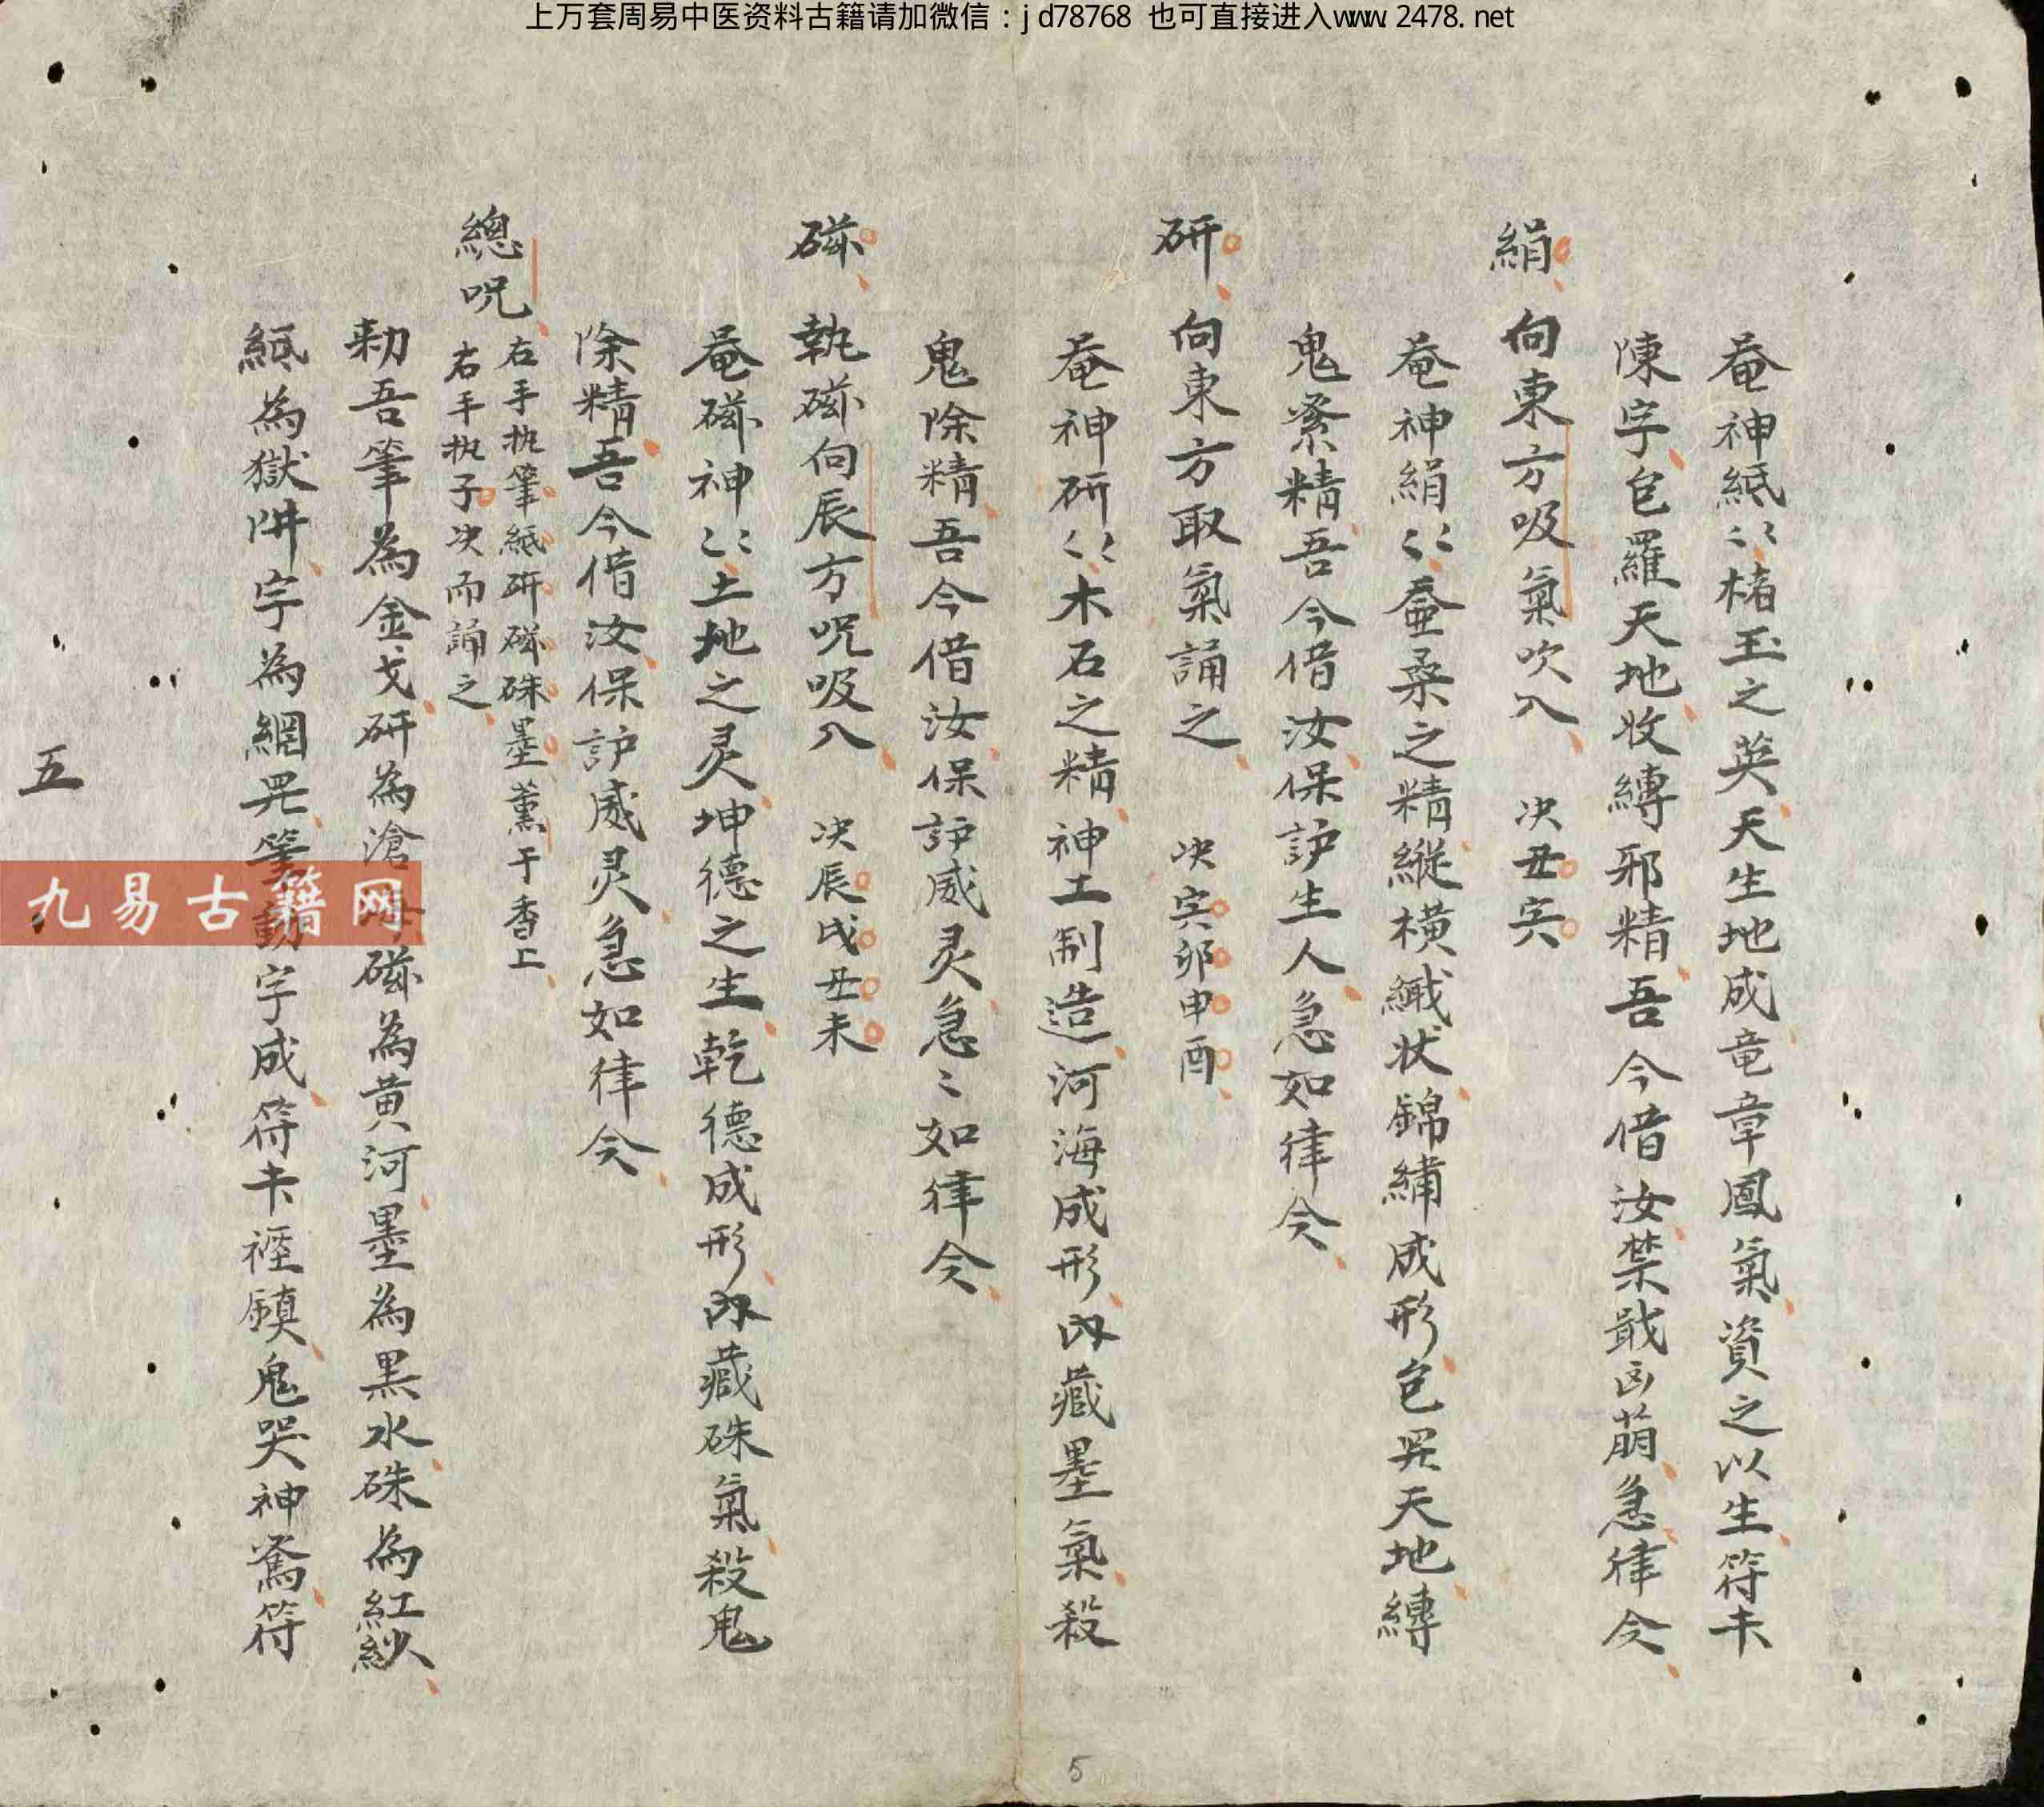 上万套周易中医资料古籍请加微信：jd78768 也可直接进入www.2478.net
奄神紙〻楮玉之英天生地成竜章鳳氣資之以生符
陳字包羅天地收縛邪精吾今借汝禁戢凶萠急律令
絹 向東方吸氣吹入 决丑寅
奄神絹〻蚕桑之精縱横織状錦繡成形包罗天地縛
鬼紮精吾今借汝保護生人急如律令
研 向東方取氣誦之 决寅卯申酉
奄神研〻木石之精神工制造河海成形内藏墨氣殺
鬼除精吾今借汝保護威灵急〻如律令
磁 執磁向辰方咒吸入 决辰戌丑未
奄磁神〻土地之灵坤德之生乾德成形内藏硃氣殺鬼
除精吾今借汝保護威灵急如律令
總咒 右手执筆紙研磁硃墨薰于香上
右手执子决而誦之
勅吾筆為金戈研為滄海磁為黄河墨為黑水硃為紅紗
紙為獄阱字為網罗筆動字成符 鎮鬼哭神驚符
五
九易古籍网
5